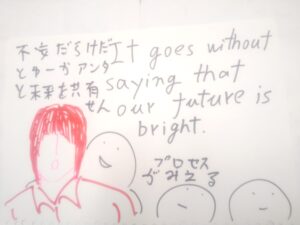 不安だらけだ
とゆーかアンタ
と未来を共有
せん
It goes without
saying that
our future is
bright.
プロセス
がみえる